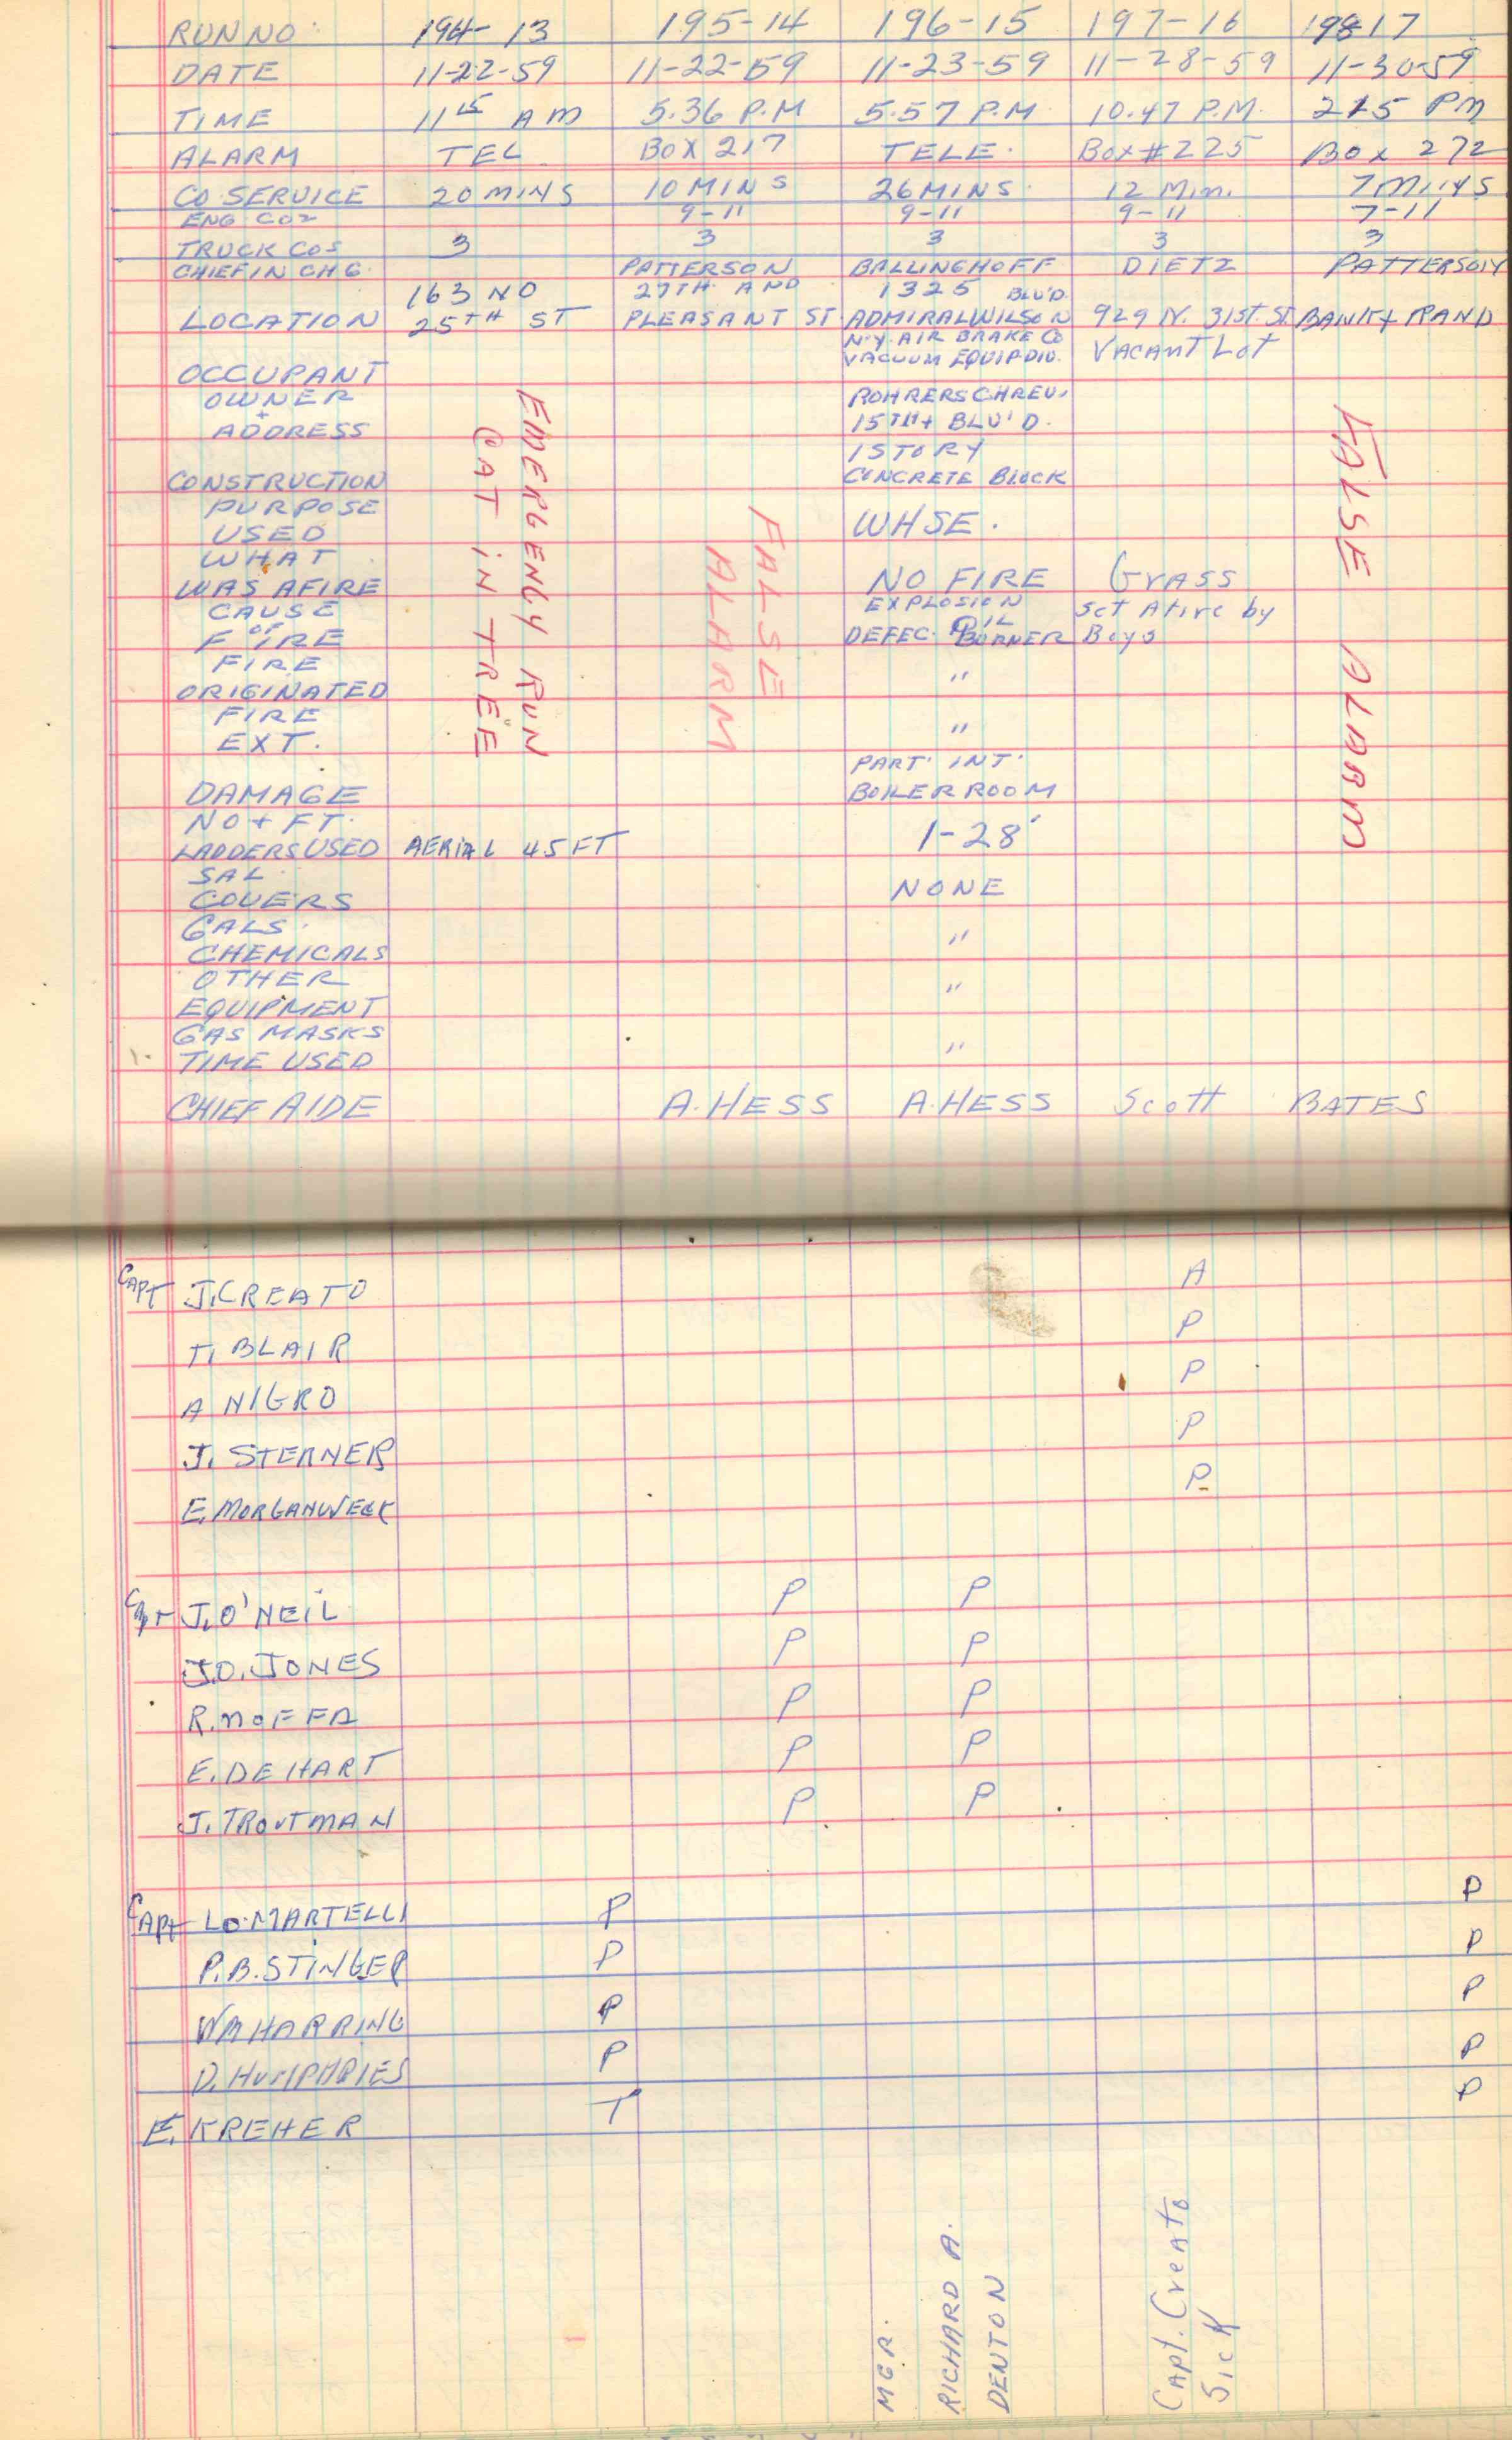 RUN NO. 194-13 195-14 196-15 197-16 198-17
DATE 11-22-59 11-22-59 11-23-59 11-28-59 11-30-59
TIME 11 15 AM 5.36 P.M 5.57 P.M 10.47 P.M. 215 PM
ALARM TEL BOX 217 TELE. Box #225 BOX 272
CO SERVICE 20 MINS 10 MINS 26 MINS. 12 Min. 7 MINS
ENG COS 9-11 9-11 9-11 7-11
TRUCK COS 3 3 3 3 3
CHIEF IN CHG. PATTERSON BALLINGHOFF DIETZ PATTERSON
163 NO 27TH AND 1325 BLV'D.
LOCATION 25TH ST PLEASANT ST. ADMIRAL WILSON 929 N. 31ST. ST. BANK & RAND
N.Y. AIR BRAKE CO Vacant Lot
VACUUM EQUIP DIV.
OCCUPANT
OWNER ROHRERS CHREV.
+
ADDRESS 15TH + BLV'D.
1 STORY
CONSTRUCTION CONCRETE BLOCK
PURPOSE
USED WHSE.
WHAT
WAS AFIRE NO FIRE Grass
CAUSE EXPLOSION Set Afire by
OF OIL
FIRE DEFEC. BURNER Boys
FIRE
ORIGINATED "
FIRE
EXT. "
PART. INT.
DAMAGE BOILER ROOM
NO + FT.
LADDERS USED AERIAL 45 FT 1-28'
SAL.
COVERS NONE
GALS.
CHEMICALS "
OTHER
EQUIPMENT "
GAS MASKS
TIME USED "
CHIEF AIDE A. HESS A. HESS Scott BATES
EMERGENCY RUN
CAT IN TREE
FALSE
ALARM
FALSE ALARM
CAPT J. CREATO A
T. BLAIR P
A NIGRO P
J. STERNER P
E. MORGANWECK P
Capt J. O'NEIL P P
J.D. JONES P P
R. NOFFA P P
E. DEHART P P
J. TROUTMAN P P
CAPt LO. MARTELLI P P
P.B. STINGER P P
WM HARRING P P
D. HUMPHRIES P P
E. KREHER T P
MGR.
RICHARD A.
DENTON
Capt. Creato
Sick